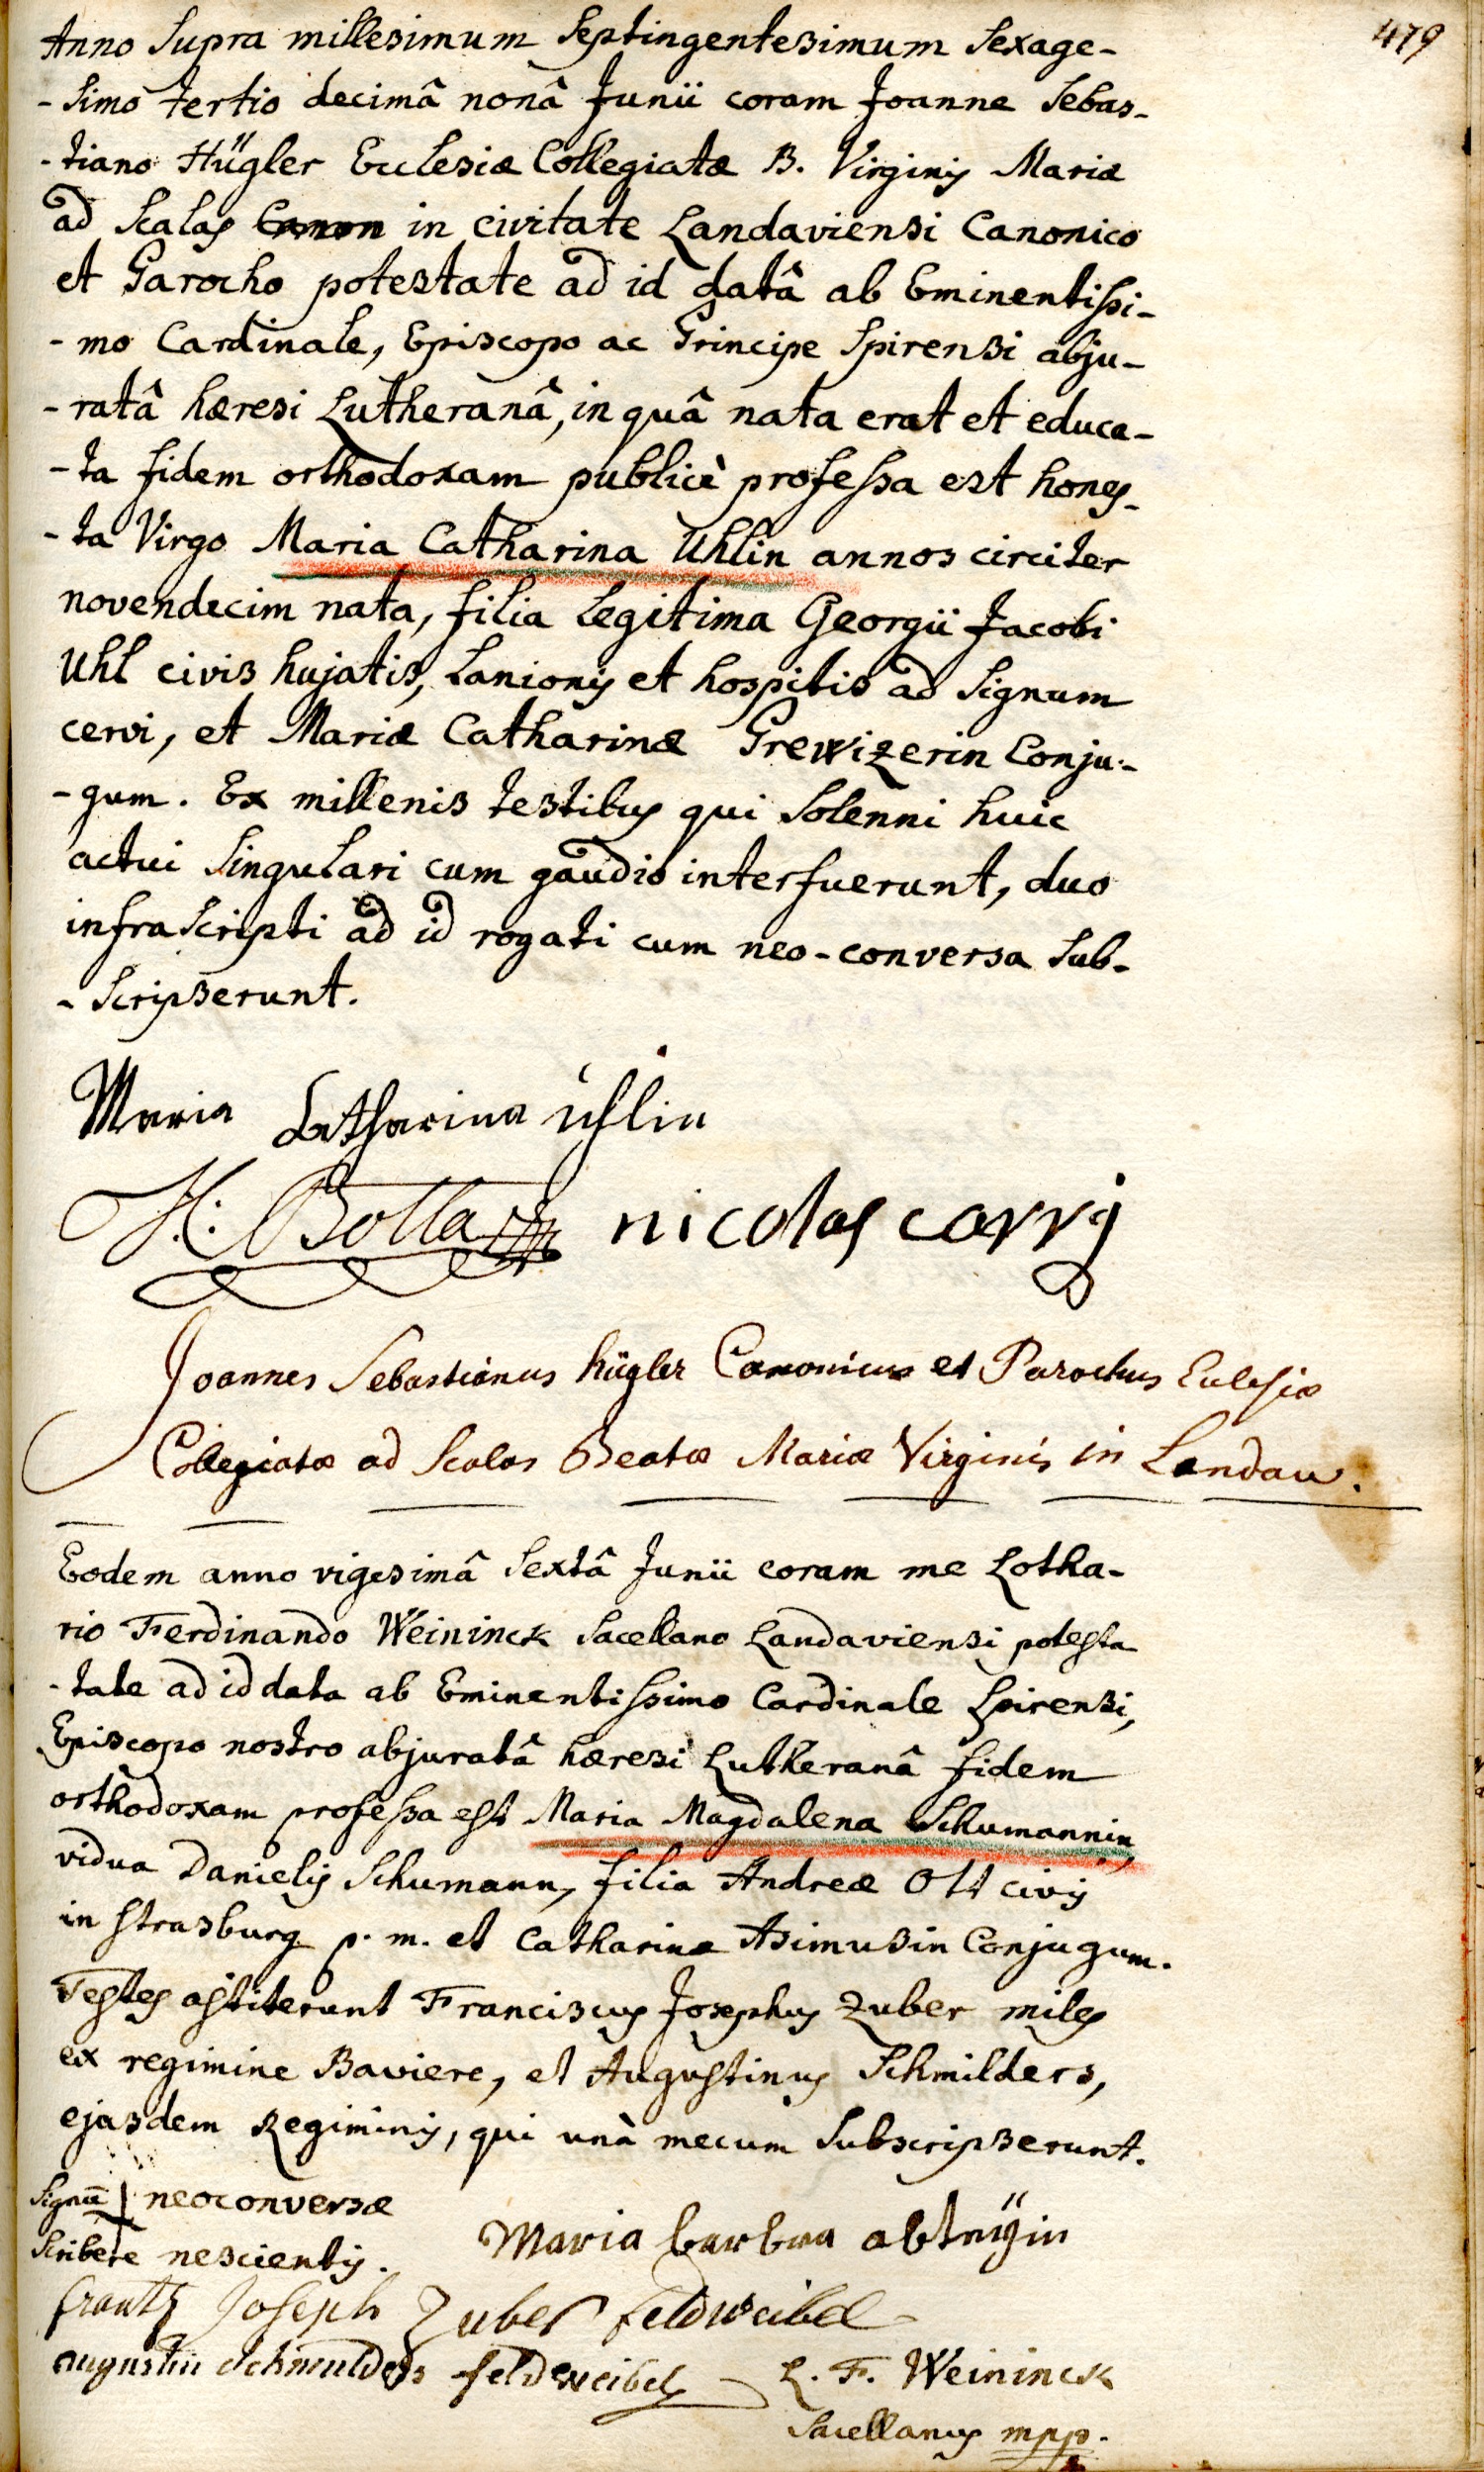 479
Anno Supra millesimum Septingentesimum Sexage-
-simo tertio decimâ nonâ Junii coram Joanne Sebas-
-tiano Hügler Ecclesiæ Collegiatæ B. Virginis Mariæ
ad Scalas in civitate Landaviensi Canonico
et Parocho potestate ad id datâ ab Eminentissi-
-mo Cardinale, Episcopo ac Principe Spirensi abju-
-ratâ hæresi Lutheranâ, in quâ nata erat et educa-
-ta fidem orthodoxam publicè professa est hones-
-ta Virgo Maria Catharina Uhlin annos circiter
novendecim nata, filia legitima Georgii Jacobi
Uhl civis hujatis, Lanionis et hospitis ad Signum
cervi, et Mariæ Catharinæ Grewizerin Conju-
-gum. Ex millenis testibus qui Solenni huic
actui Singulari cum gaudio interfuerunt, duo
infra Scripti ad id rogati cum neo-conversa Sub-
-Scripserunt.
Maria Catharina Uhlin
nicolas carry
Joannes Sebastianus hügler Canonicus et Parochus Ecclesiæ
Collegiatæ ad Scalas Beatæ Mariæ Virginis in Landau.
Eodem anno vigesimâ Sextâ Junii coram me Lotha-
rio Ferdinando Weininck Sacellano Landaviensi potesta
-tate ad id data ab Eminentissimo Cardinale Spirensi,
Episcopo nostro abjuratâ hæresi Lutheranâ fidem
orthodoxam professa est Maria Magdalena Schumannin,
vidua Danielis Schumann, filia Andreæ Ott civis
in Strasburg p. m. et Catharinæ Asimusin Conjugum.
Testes astiterunt Franciscus Josephus Zuber miles
ex regimine Baviere, et Augustinus Schmilders,
ejusdem Regiminis, qui unà mecum Subscripserunt.
Signũ + neoconversæ
Scribere nescientis.
Maria barbra
frantz Joseph Zuber feldweibel
augustin Schmulders feldweibel
L. F. Weininck
Sacellanus mpp.